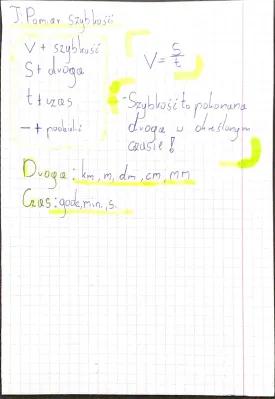 T: Pomiar szybkości
V + szybkość
S + droga
t + czas
V = s/t
- Szybkość to pokonana
droga w określonym
czasie!
Droga: km, m, dm, cm, mm
Czas: godz, min., s.